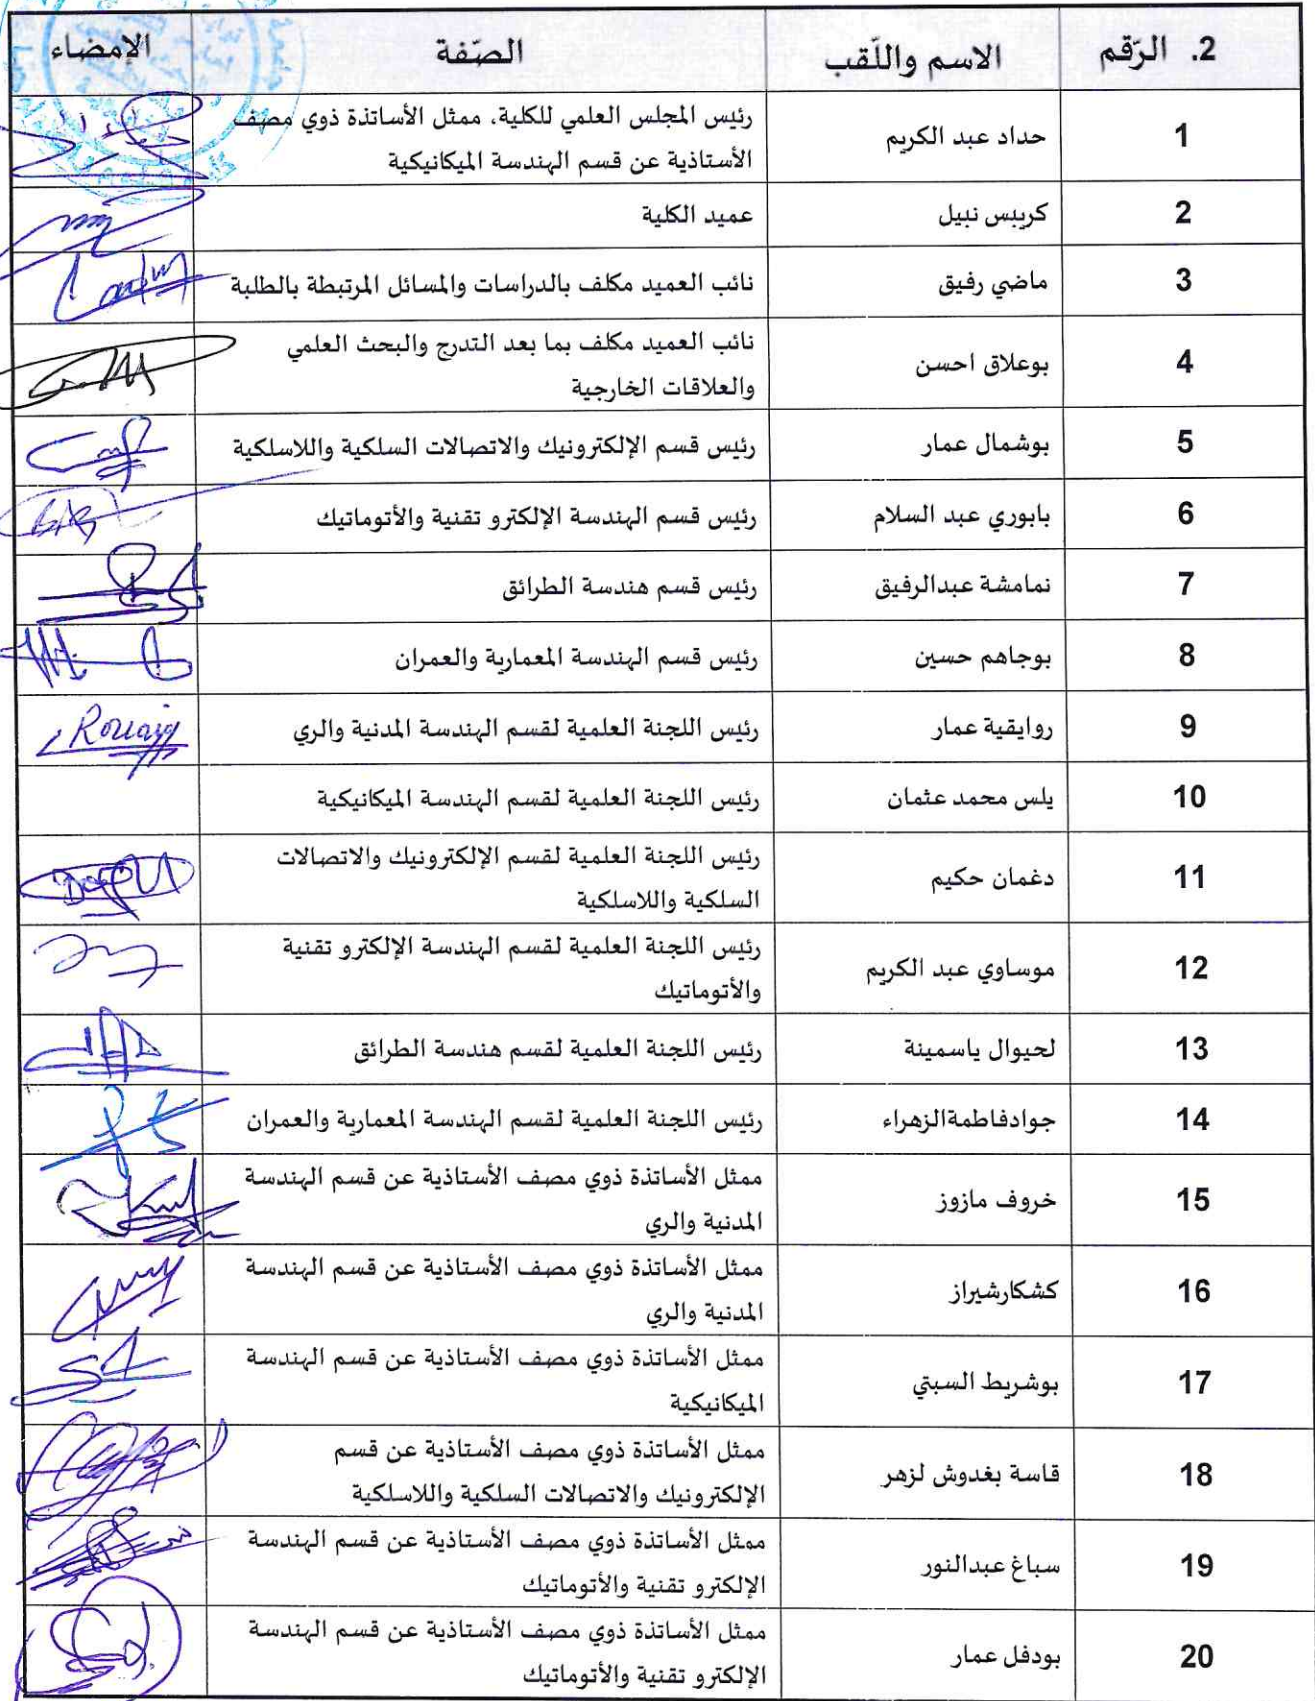 2. الرّقم الاسم واللّقب الصّفة الإمضاء
1 حداد عبد الكريم رئيس المجلس العلمي للكلية، ممثل الأساتذة ذوي مصف
الأستاذية عن قسم الهندسة الميكانيكية
2 كريبس نبيل عميد الكلية
3 ماضي رفيق نائب العميد مكلف بالدراسات والمسائل المرتبطة بالطلبة
4 بوعلاق احسن نائب العميد مكلف بما بعد التدرج والبحث العلمي
والعلاقات الخارجية
5 بوشمال عمار رئيس قسم الإلكترونيك والاتصالات السلكية واللاسلكية
6 بابوري عبد السلام رئيس قسم الهندسة الإلكترو تقنية والأتوماتيك
7 نمامشة عبدالرفيق رئيس قسم هندسة الطرائق
8 بوجاهم حسين رئيس قسم الهندسة المعمارية والعمران
9 روايقية عمار رئيس اللجنة العلمية لقسم الهندسة المدنية والري
10 يلس محمد عثمان رئيس اللجنة العلمية لقسم الهندسة الميكانيكية
11 دغمان حكيم رئيس اللجنة العلمية لقسم الإلكترونيك والاتصالات
السلكية واللاسلكية
12 موساوي عبد الكريم رئيس اللجنة العلمية لقسم الهندسة الإلكترو تقنية
والأتوماتيك
13 لحيوال ياسمينة رئيس اللجنة العلمية لقسم هندسة الطرائق
14 جوادفاطمةالزهراء رئيس اللجنة العلمية لقسم الهندسة المعمارية والعمران
15 خروف مازوز ممثل الأساتذة ذوي مصف الأستاذية عن قسم الهندسة
المدنية والري
16 كشكارشيراز ممثل الأساتذة ذوي مصف الأستاذية عن قسم الهندسة
المدنية والري
17 بوشريط السبتي ممثل الأساتذة ذوي مصف الأستاذية عن قسم الهندسة
الميكانيكية
18 قاسة بغدوش لزهر ممثل الأساتذة ذوي مصف الأستاذية عن قسم
الإلكترونيك والاتصالات السلكية واللاسلكية
19 سباغ عبدالنور ممثل الأساتذة ذوي مصف الأستاذية عن قسم الهندسة
الإلكترو تقنية والأتوماتيك
20 بودفل عمار ممثل الأساتذة ذوي مصف الأستاذية عن قسم الهندسة
الإلكترو تقنية والأتوماتيك